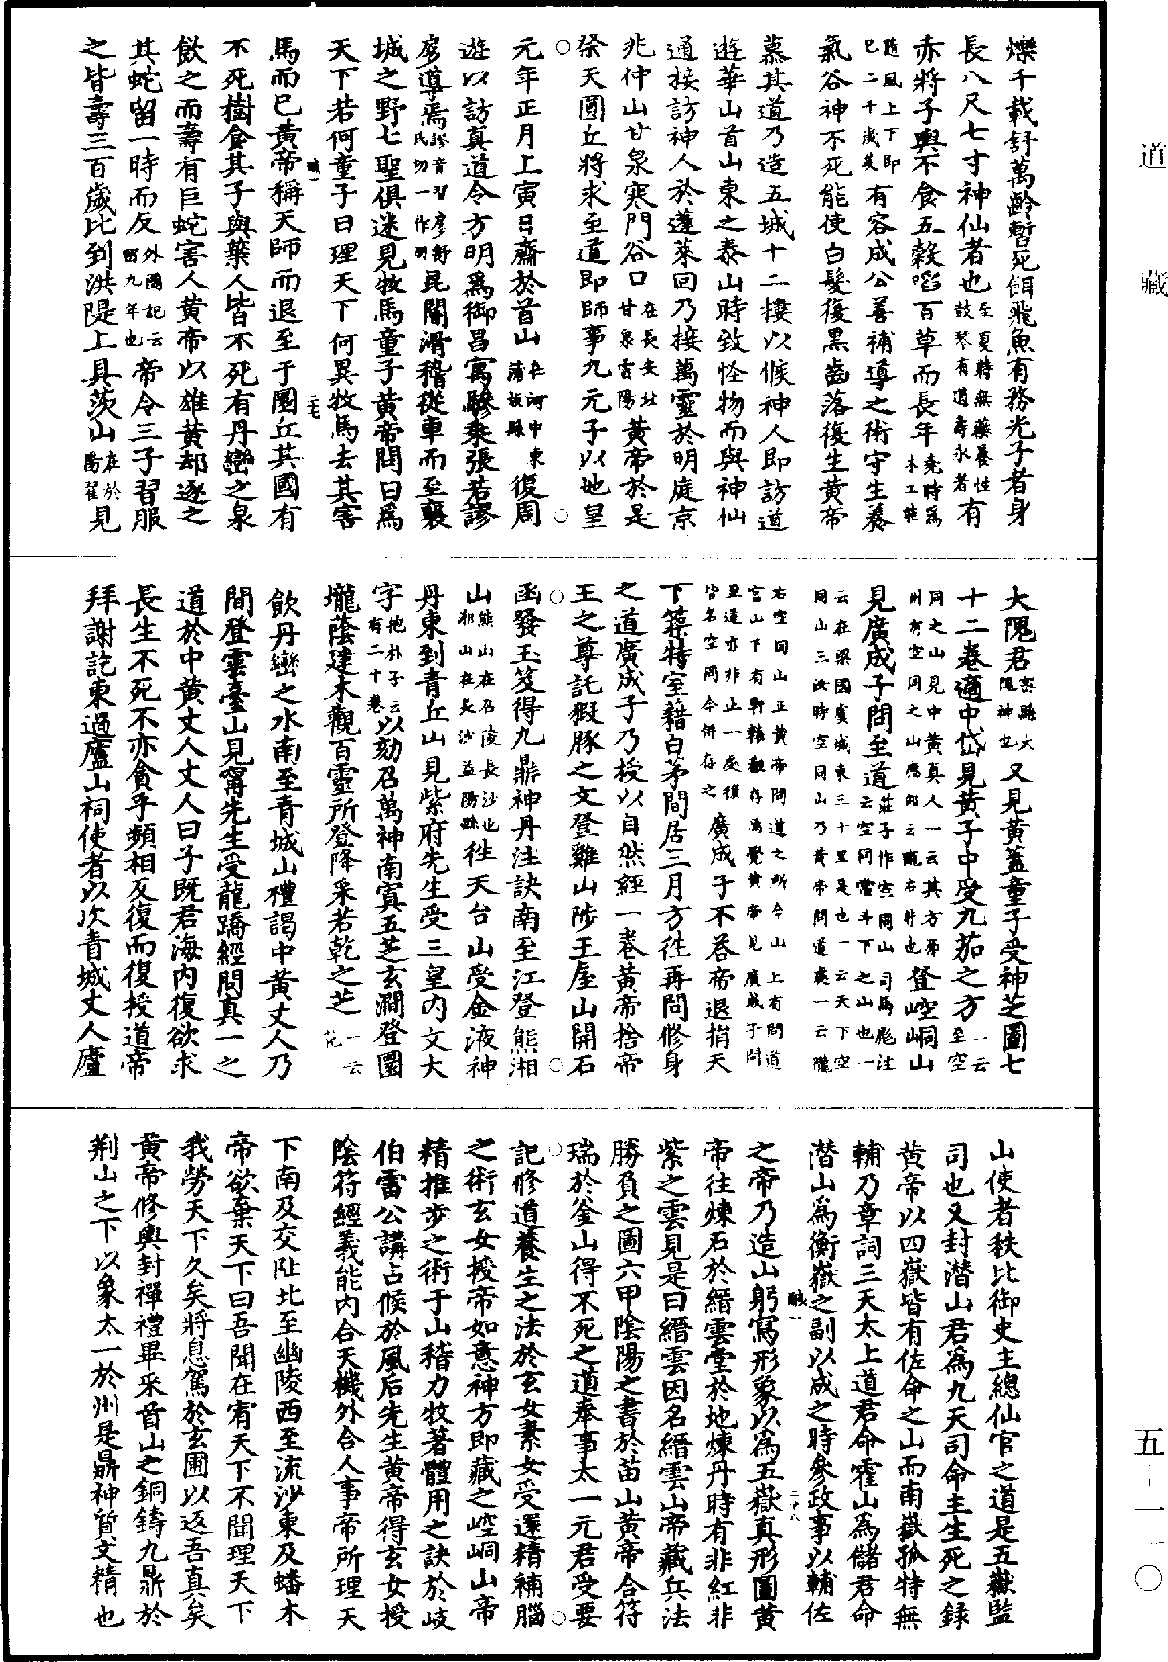 道藏
五·一一〇
爍千載舒萬齡暫死餌飛魚有務光子者身
長八尺七寸神仙者也至夏時無藥養性鼓琴有道壽永者有
赤將子輿不食五穀啗百草而長年堯時爲木工能
隨風上下即已二十歲矣有容成公善補導之術守生養
氣谷神不死能使白髮復黑齒落復生黃帝
慕其道乃造五城十二樓以候神人即訪道
遊華山首山東之泰山時致怪物而與神仙
通接訪神人於蓬萊回乃接萬靈於明庭京
兆仲山甘泉寒門谷口在長安北甘泉雲陽黃帝於是
祭天圓丘將求至道即師事九元子以地皇
元年正月上寅日齋於首山在河中東蒲坂縣復周
遊以訪真道令方明爲御昌㝢驂乘張若謵
㢋導焉謵音習㢋舒氏切一作明昆閽滑稽從車而至襄
城之野七聖俱迷見牧馬童子黃帝問曰爲
天下若何童子曰理天下何異牧馬去其害
馬而已黃帝稱天師而退至于圜丘其國有
不死樹食其子與藥人皆不死有丹巒之泉
飲之而壽有巨蛇害人黃帝以雄黃却逐之
其蛇留一時而反外國記云留九年也帝令三子習服
之皆壽三百歲比到洪隄上具茨山在於陽翟見
大隗君密縣大隗神也又見黃蓋童子受神芝圖七
十二卷適中岱見黃子中受九茄之方一云至空
同之山見中黃真人一云其方常州有空同之山應劭云隴右時也登崆峒山
見廣成子問至道莊子作空同山司馬彪注云空同當斗下之山也一
云在梁國虞城東三十里是也一云天下空同山三汝時空同山乃黃帝問道處一云隴
右空同山正黃帝問道之所今山上有問道宮山下有軒轅觀存焉覺黃帝見廣成子問
至道亦非止一處後皆名空同今併存之廣成子不荅帝退捐天
下築特室藉白茅間居三月方往再問修身
之道廣成子乃授以自然經一卷黃帝捨帝
王之尊託猳豚之文登雞山陟王屋山開石
函發玉笈得九鼎神丹注訣南至江登熊湘
山熊山在召陵長沙也湘山在長沙益陽縣往天台山受金液神
丹東到青丘山見紫府先生受三皇內文大
字抱朴子云有二十卷以劾召萬神南寘五芝玄㵎登圜
壠蔭建木觀百靈所登降采若乾之芝一云花
飲丹巒之水南至青城山禮謁中黃丈人乃
間登雲臺山見甯先生受龍蹻經問真一之
道於中黃丈人丈人曰子既君海內復欲求
長生不死不亦貪乎頻相反復而復授道帝
拜謝訖東過廬山祠使者以次青城丈人廬
山使者秩比御史主總仙官之道是五嶽監
司也又封潛山君爲九天司命主生死之錄
黃帝以四嶽皆有佐命之山而南嶽孤特無
輔乃章詞三天太上道君命霍山爲儲君命
潛山爲衡嶽之副以成之時參政事以輔佐
之帝乃造山躬寫形象以爲五嶽真形圖黃
帝往煉石於縉雲堂於地煉丹時有非紅非
紫之雲見是曰縉雲因名縉雲山帝藏兵法
勝負之圖六甲陰陽之書於苗山黃帝合符
瑞於釜山得不死之道奉事太一元君受要
記修道養生之法於玄女素女受還精補腦
之術玄女授帝如意神方即藏之崆峒山帝
精推步之術于山稽力牧著體用之訣於岐
伯雷公講占候於風后先生黃帝得玄女授
陰符經義能內合天機外合人事帝所理天
下南及交阯北至幽陵西至流沙東及蟠木
帝欲棄天下曰吾聞在宥天下不聞理天下
我勞天下久矣將息駕於玄圃以返吾真矣
黃帝修輿封禪禮畢采首山之銅鑄九鼎於
荆山之下以象太一於州是鼎神質文精也